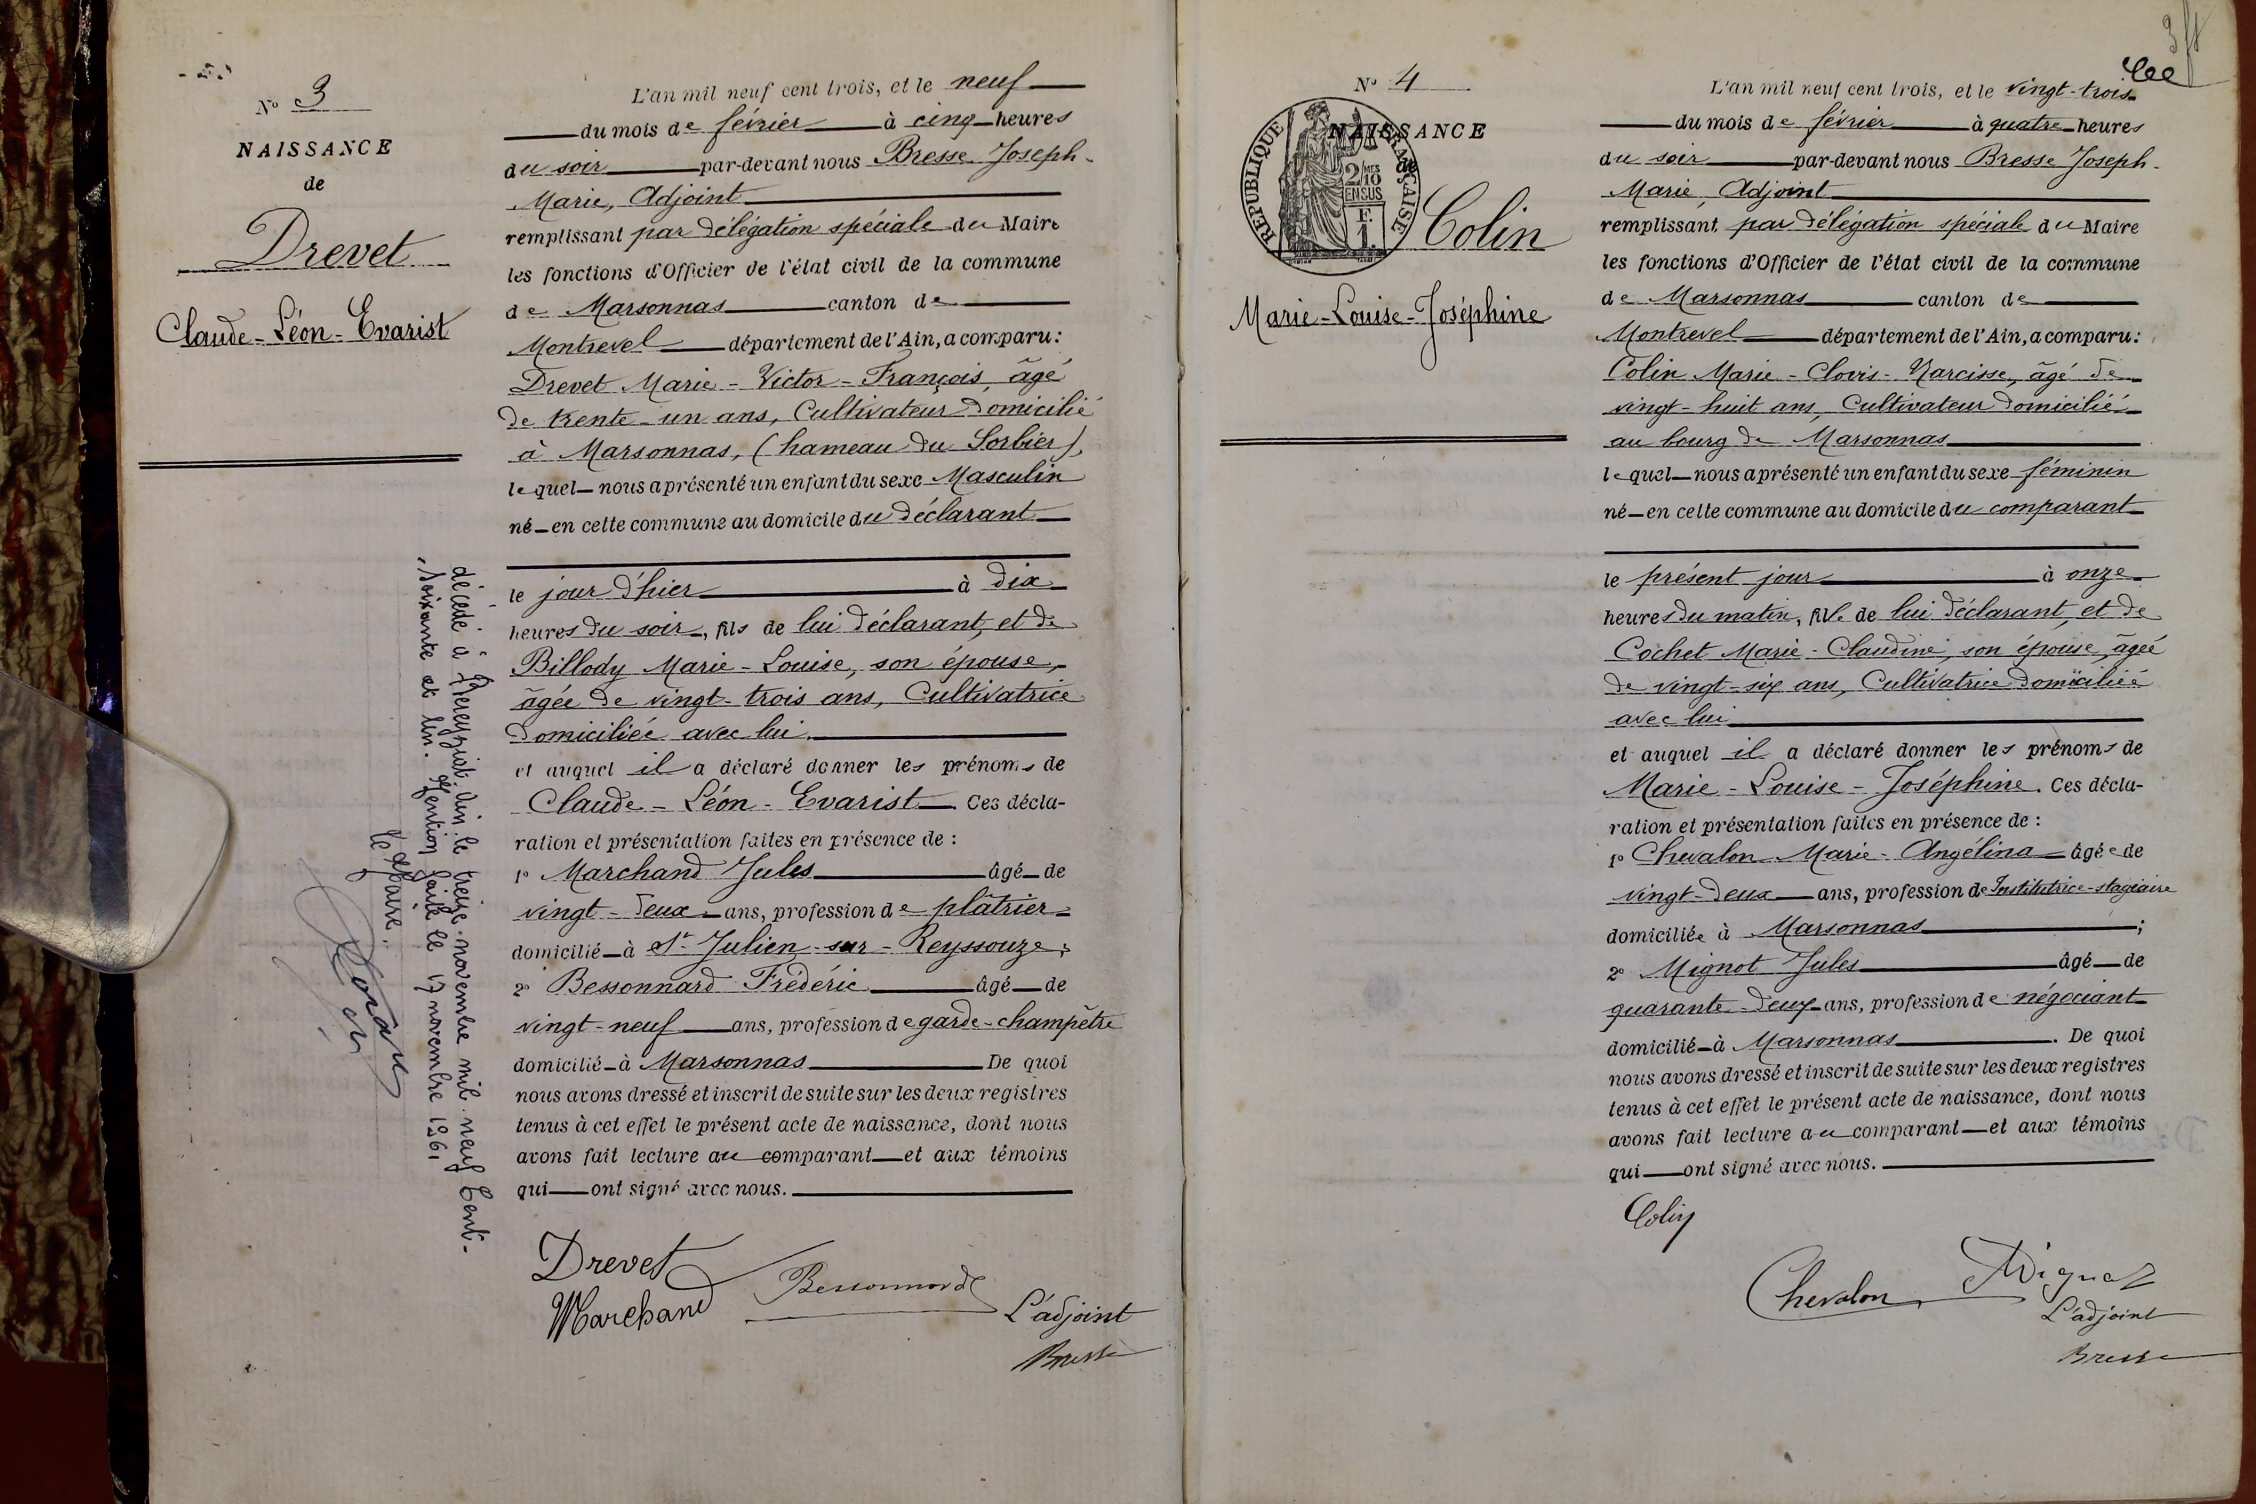 N° 3
NAISSANCE
de
Drevet
Claude-Léon-Evarist
décédé à Pereyziat. Ain. le treize novembre mil neuf Cent-
soixante et Un. Mention faite le 17 novembre 1961
le Maire.
L'an mil neuf cent trois, et le neuf
du mois de février à cinq heures
du soir par-devant nous Bresse Joseph-
Marie, Adjoint
remplissant par délégation spéciale du Maire
les fonctions d'Officier de l'état civil de la commune
de Marsonnas canton de
Montrevel département de l'Ain, a comparu:
Drevet Marie-Victor-François, âgé
de trente-un ans, Cultivateur domicilié
à Marsonnas, (hameau du Sorbier),
lequel nous a présenté un enfant du sexe Masculin
né en cette commune au domicile du déclarant
le jour d'hier à dix
heures du soir, fils de lui déclarant, et de
Billody Marie-Louise, son épouse,
âgée de vingt-trois ans, Cultivatrice
domiciliée avec lui.
et auquel il a déclaré donner les prénoms de
Claude-Léon-Evarist. Ces décla-
ration et présentation faites en présence de :
1° Marchand Jules âgé de
vingt-deux ans, profession de plâtrier
domicilié à St Julien-sur-Reyssouze;
2° Bessonnard Frédéric âgé de
vingt-neuf ans, profession de garde-champêtre
domicilié à Marsonnas De quoi
nous avons dressé et inscrit de suite sur les deux registres
tenus à cet effet le présent acte de naissance, dont nous
avons fait lecture au comparant et aux témoins
qui ont signé avec nous.
Drevet
Marchand
Bessonnard
L'adjoint
Bresse
N° 4
NAISSANCE
de
RÉPUBLIQUE FRANÇAISE
2/10 MES
EN SUS
F.
1.
Colin
Marie-Louise-Joséphine
L'an mil neuf cent trois, et le vingt-trois
du mois de février à quatre heures
du soir par-devant nous Bresse Joseph-
Marie, Adjoint
remplissant par délégation spéciale du Maire
les fonctions d'Officier de l'état civil de la commune
de Marsonnas canton de
Montrevel département de l'Ain, a comparu:
Colin Marie-Clovis-Narcisse, âgé de
vingt-huit ans, Cultivateur domicilié
au bourg de Marsonnas
lequel nous a présenté un enfant du sexe féminin
né en cette commune au domicile du comparant
le présent jour à onze
heures du matin, fille de lui déclarant, et de
Cochet Marie-Claudine, son épouse, âgée
de vingt-six ans, Cultivatrice domiciliée
avec lui
et auquel il a déclaré donner les prénoms de
Marie-Louise-Joséphine. Ces décla-
ration et présentation faites en présence de :
1° Chevalon Marie-Angélina âgée de
vingt-deux ans, profession de Institutrice-stagiaire
domiciliée à Marsonnas ;
2° Mignot Jules âgé de
quarante-deux ans, profession de négociant
domicilié à Marsonnas. De quoi
nous avons dressé et inscrit de suite sur les deux registres
tenus à cet effet le présent acte de naissance, dont nous
avons fait lecture au comparant et aux témoins
qui ont signé avec nous.
Colin
Chevalon
Mignot
L'adjoint
Bresse